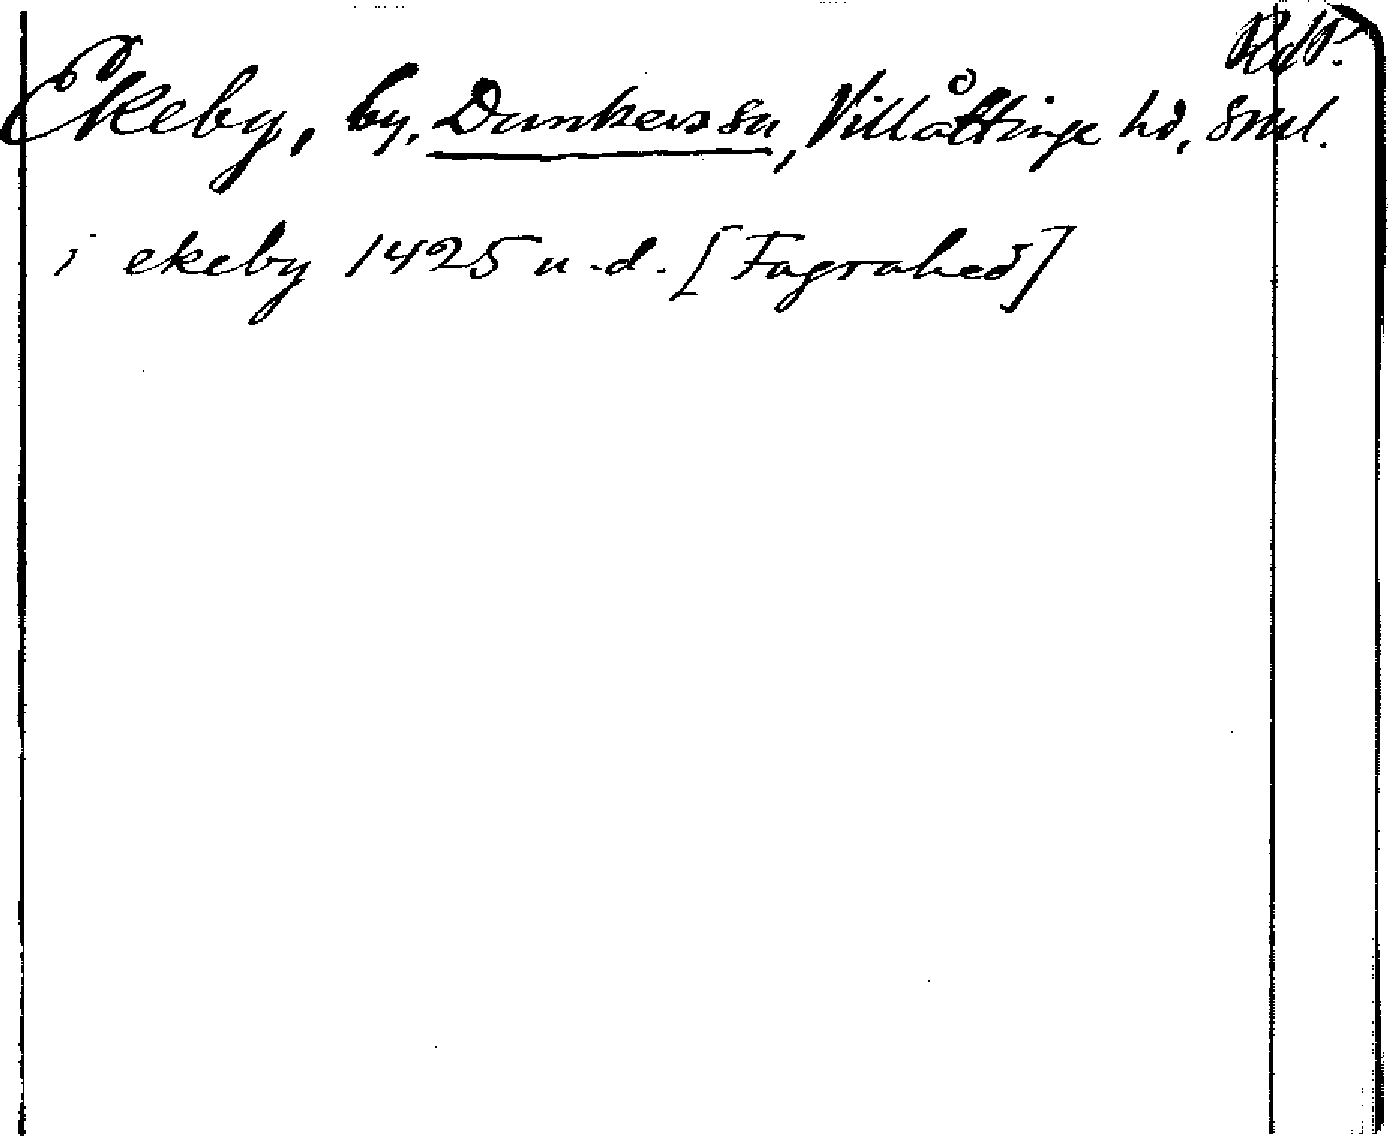 Ekeby, by, Dunkers sn, Villåttinge hd, Sml.
i ekeby 1425 u.d. [Fagrahed]